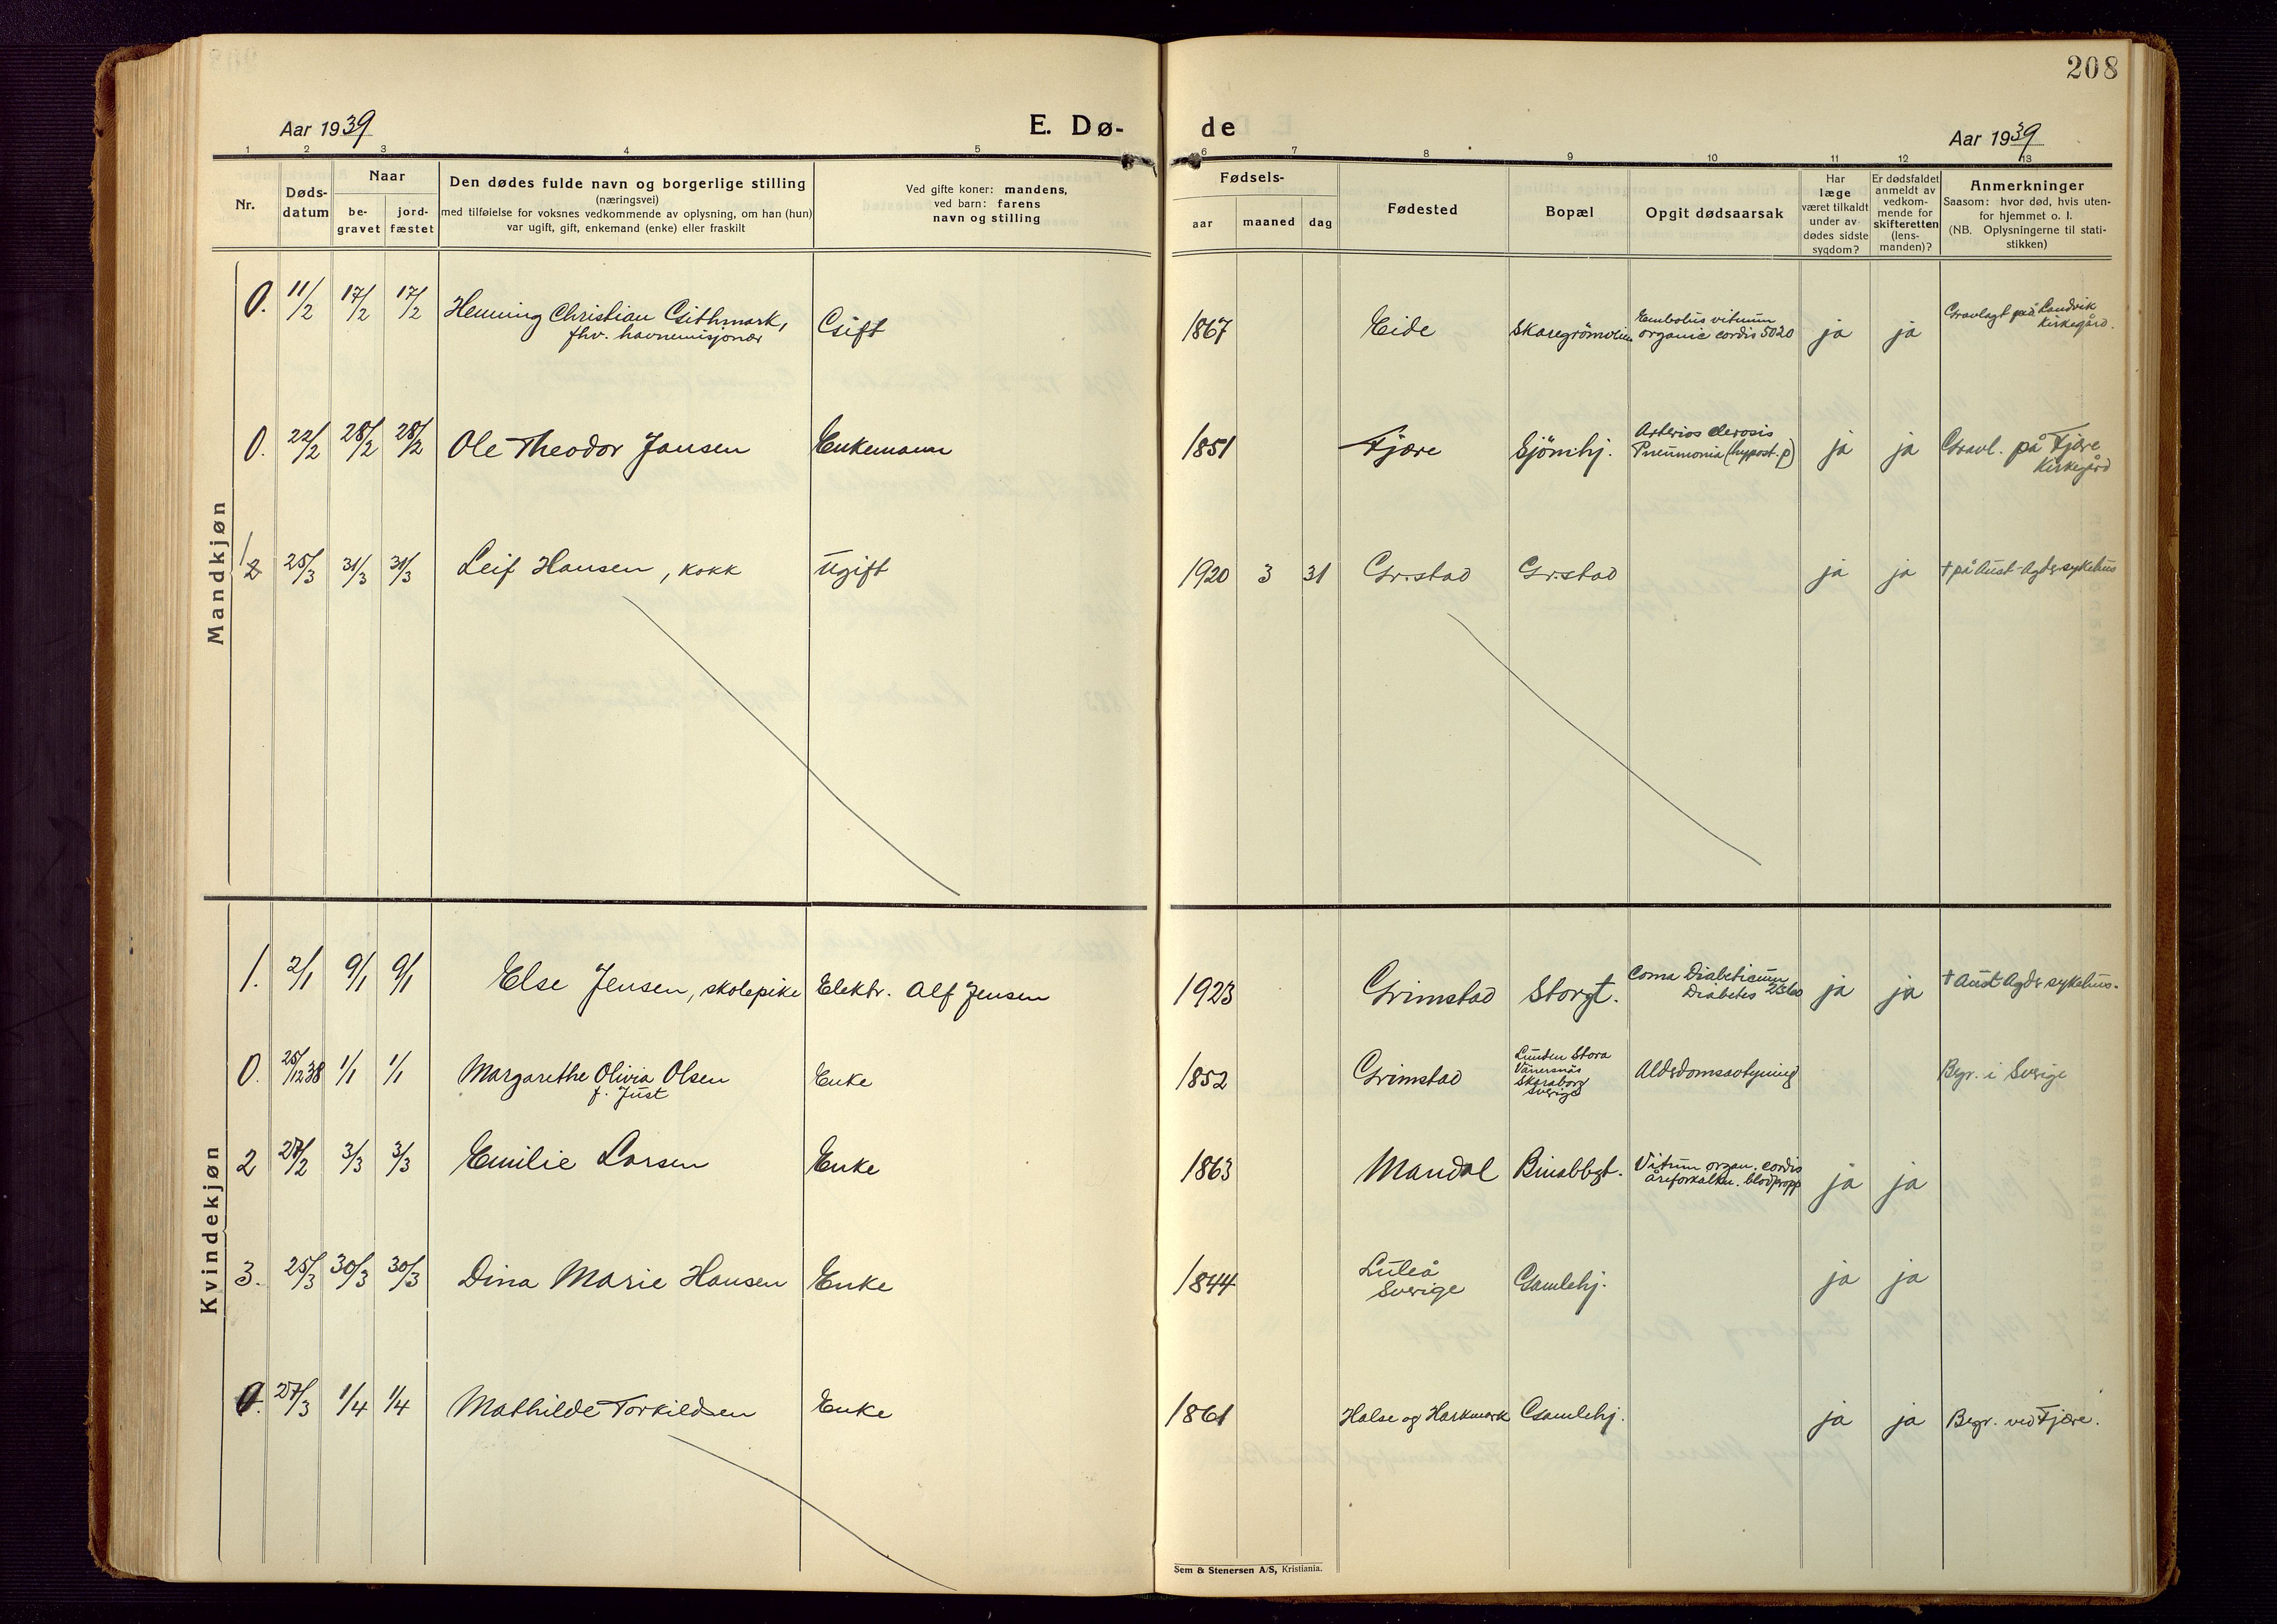 208
Aar 1939
E. Dø-
de
Aar 1939
1 2 3 4 5 6 7 8 9 10 11 12 13
Nr.
Døds-
datum
Naar
be-
gravet
jord-
fæstet
Den dødes fulde navn og borgerlige stilling
(næringsvei)
med tilføielse for voksnes vedkommende av oplysning, om han (hun)
var ugift, gift, enkemand (enke) eller fraskilt
Ved gifte koner: mandens,
ved barn: farens
navn og stilling
Fødsels-
aar maaned dag
Fødested
Bopæl
Opgit dødsaarsak
Har
læge
været tilkaldt
under av-
dødes sidste
sygdom?
Er dødsfaldet
anmeldt av
vedkom-
mende for
skifteretten
(lens-
manden)?
Anmerkninger
Saasom: hvor død, hvis uten-
for hjemmet o. l.
(NB. Oplysningerne til stati-
stikken)
Mandkjøn
0. 11/2 17/2 17/2 Henning Christian Githmark,
fhv. havnemisjonær
Gift
1867 Eide
Embolus vitium
organic cordis 5020
ja ja
Gravlagt på Landvik
Kirkegård.
0. 22/2 28/2 28/2 Ole Theodor Jansen Enkemann
1851 Fjære Sjömhj.
Pneumonia (hypost. p)
ja ja
Gravl. på Fjære
Kirkegård
1 2 25/3 31/3 31/3 Leif Hansen, kokk Ugift
1920 3 31 Gr.stad Gr.stad ja ja † på Aust-Agds sykehus
Kvindekjøn
1. 2/1 9/1 9/1 Else Jensen, skolepike Elektr. Alf Jensen
1923 Grimstad Storgt.
Coma Diabeticum
Diabetes 2360
ja ja † Aust Agds sykehus.
0. 25/12 38 1/1 1/1 Margarethe Olivia Olsen
f. Just
Enke
1852 Grimstad
Lunden Stora
Vänersnäs
Skaraborg
Sverige
Alderdomsavtyning
Begr. i Sverige
2 27/2 3/3 3/3 Emilie Larsen Enke
1863 Mandal Binabbgt.
Vitium organ. cordis
åreforkalkn. blodpropp
ja ja
3. 25/3 30/3 30/3 Dina Marie Hansen Enke
1844
Luleå
Sverige
Gamlehj.
ja ja
0. 27/3 1/4 1/4 Mathilde Torkildsen Enke
1861 Halse og Harkmark Gamlehj. ja ja Begr. ved Fjære.
Sem & Stenersen A/S, Kristiania.